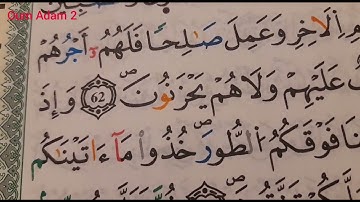 Oum Adam 2
اِ۬لَاخِرِ وَعَمِلَ صَٰلِحاٗ فَلَهُمُۥٓ أَجْرُهُمْ
عَلَيْهِمْ وَلَا هُمْ يَحْزَنُونَۖ 62 وَإِذَ
نَا فَوْقَكُمُ اُ۬لطُّورَۖ خُذُواْ مَآ ءَاتَيْنَٰكُم